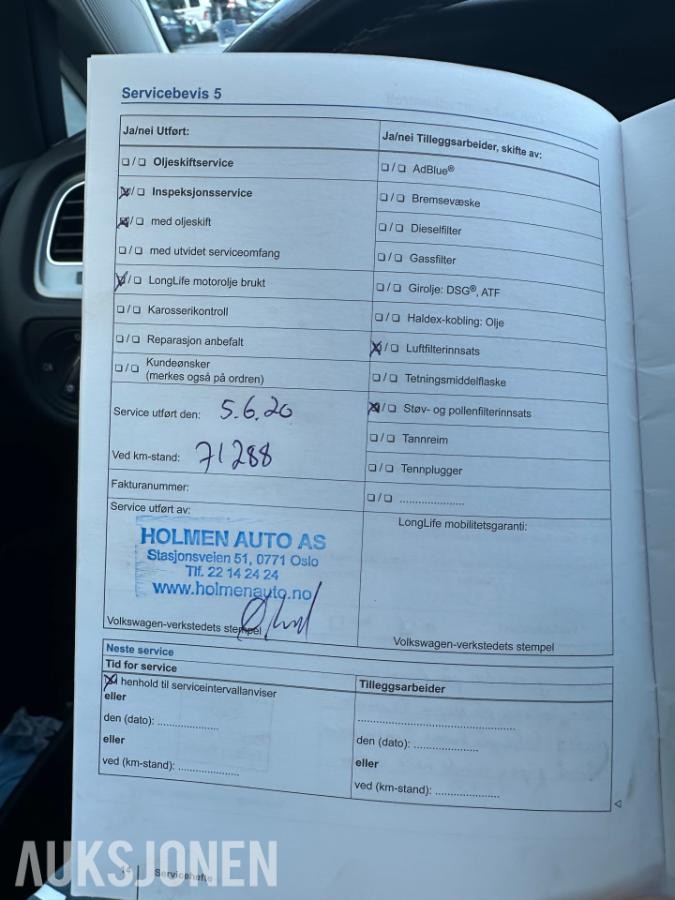 Servicebevis 5
Ja/nei Utført:
☐/☐ Oljeskiftservice
☒/☐ Inspeksjonsservice
☒/☐ med oljeskift
☐/☐ med utvidet serviceomfang
☒/☐ LongLife motorolje brukt
☐/☐ Karosserikontroll
☐/☐ Reparasjon anbefalt
☐/☐ Kundeønsker
(merkes også på ordren)
Service utført den: 5.6.20
Ved km-stand: 71288
Fakturanummer:
Service utført av:
HOLMEN AUTO AS
Stasjonsveien 51, 0771 Oslo
Tlf. 22 14 24 24
www.holmenauto.no
Volkswagen-verkstedets stempel
Ja/nei Tilleggsarbeider, skifte av:
☐/☐ AdBlue®
☐/☐ Bremsevæske
☐/☐ Dieselfilter
☐/☐ Gassfilter
☐/☐ Girolje: DSG®, ATF
☐/☐ Haldex-kobling: Olje
☒/☐ Luftfilterinnsats
☐/☐ Tetningsmiddelflaske
☒/☐ Støv- og pollenfilterinnsats
☐/☐ Tannreim
☐/☐ Tennplugger
☐/☐ ....................
LongLife mobilitetsgaranti:
Volkswagen-verkstedets stempel
Neste service
Tid for service
☒ henhold til serviceintervallanviser
eller
den (dato): ...................
eller
ved (km-stand): ...................
Tilleggsarbeider
..................................................
den (dato): ....................
eller
ved (km-stand): ....................
Servicehefte
AUKSJONEN